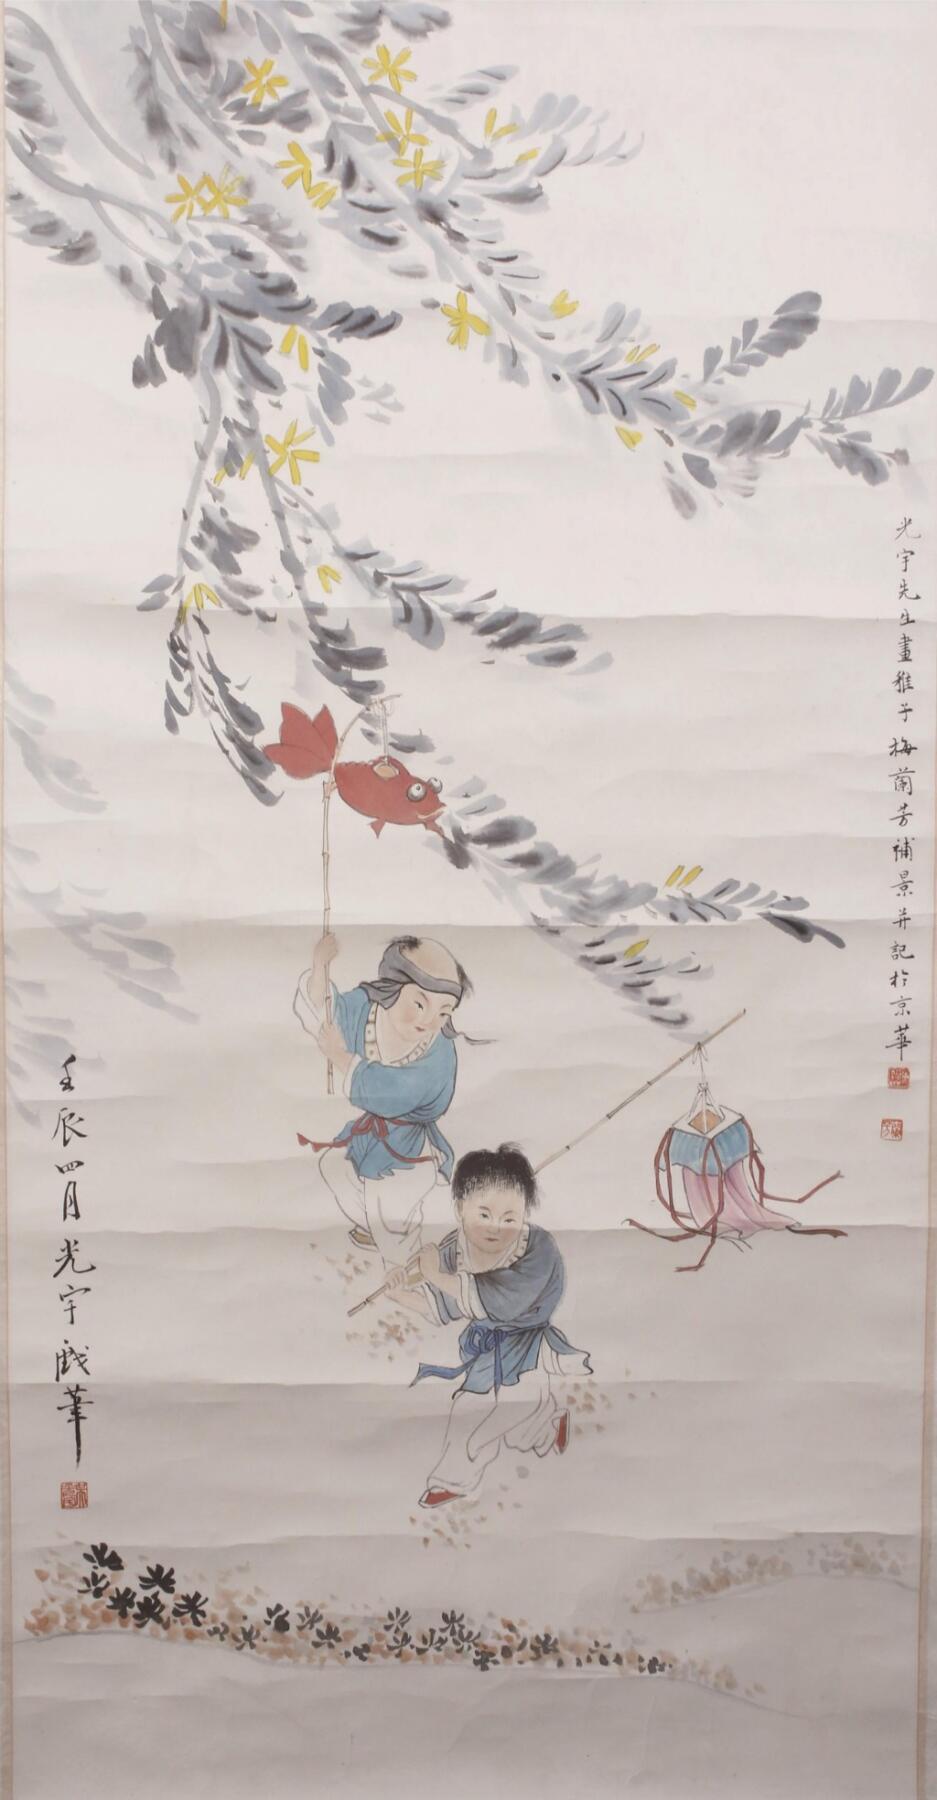 光宇先生畫稚子梅蘭芳補景并記於京華
壬辰四月光宇戲筆